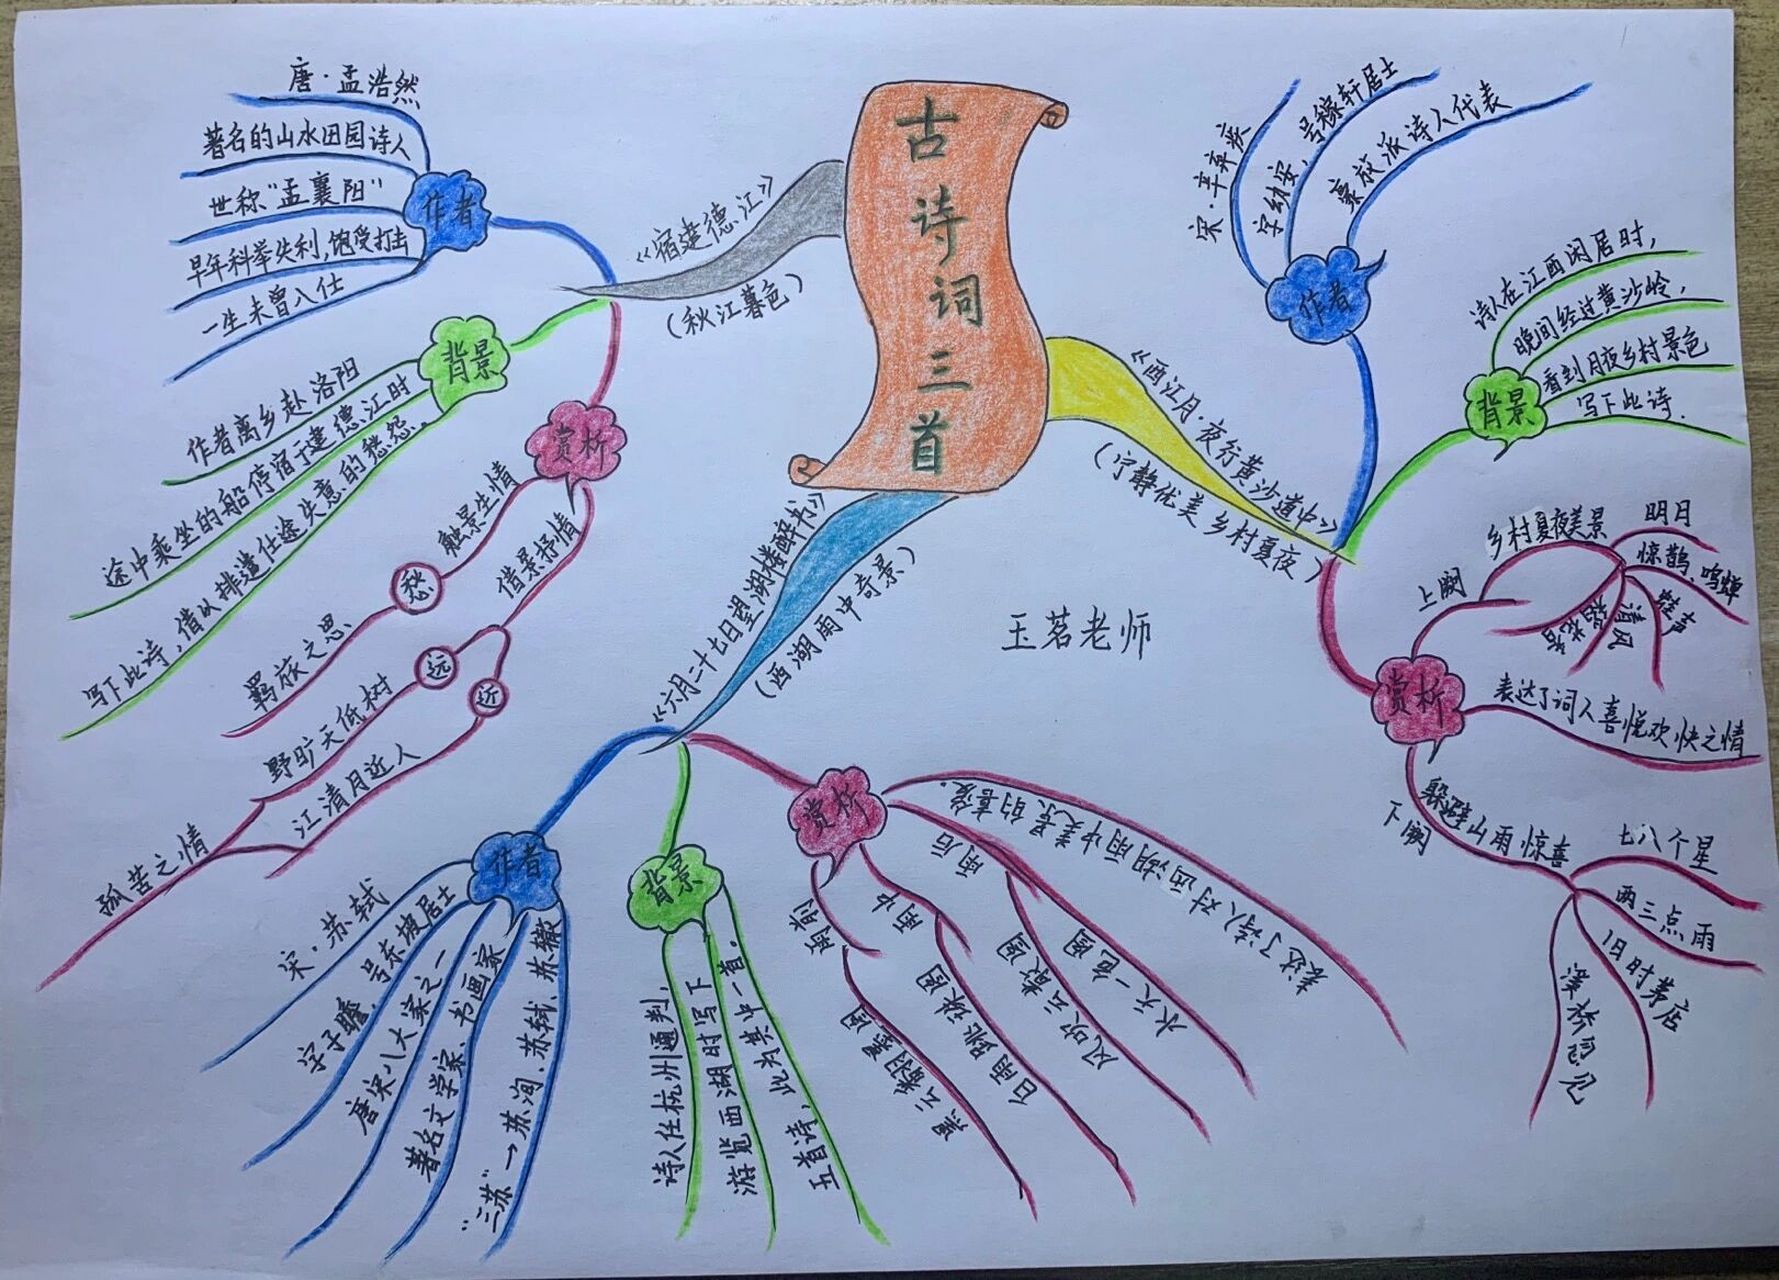 古诗词三首
《宿建德江》
(秋江暮色)
作者
唐·孟浩然
著名的山水田园诗人
世称"孟襄阳"
早年科举失利,饱受打击
一生未曾入仕
背景
作者离乡赴洛阳
途中乘坐的船停宿于建德江时
写下此诗,借以排遣仕途失意的愁怨。
赏析
触景生情
愁
羁旅之思
借景抒情
远
近
野旷天低树
江清月近人
孤苦之情
《六月二十七日望湖楼醉书》
(西湖雨中奇景)
作者
宋·苏轼
字子瞻,号东坡居士
唐宋八大家之一
著名文学家、书画家
"三苏"→苏洵、苏轼、苏辙
背景
诗人任杭州通判,
游览西湖时写下
五首诗,此为其中一首。
赏析
雨前
黑云翻墨图
雨中
白雨跳珠图
雨后
风吹云散图
水天一色图
表达了诗人对西湖雨中美景的喜爱.
《西江月·夜行黄沙道中》
(宁静优美 乡村夏夜)
作者
宋·辛弃疾
字幼安,号稼轩居士
豪放派诗人代表
背景
诗人在江西闲居时,
晚间经过黄沙岭,
看到月夜乡村景色
写下此诗.
赏析
上阕
乡村夏夜美景
明月
惊鹊、鸣蝉
蛙声
清风
稻花香
表达了词人喜悦欢快之情
下阕
躲避山雨惊喜
七八个星
两三点雨
旧时茅店
溪桥忽见
玉茗老师